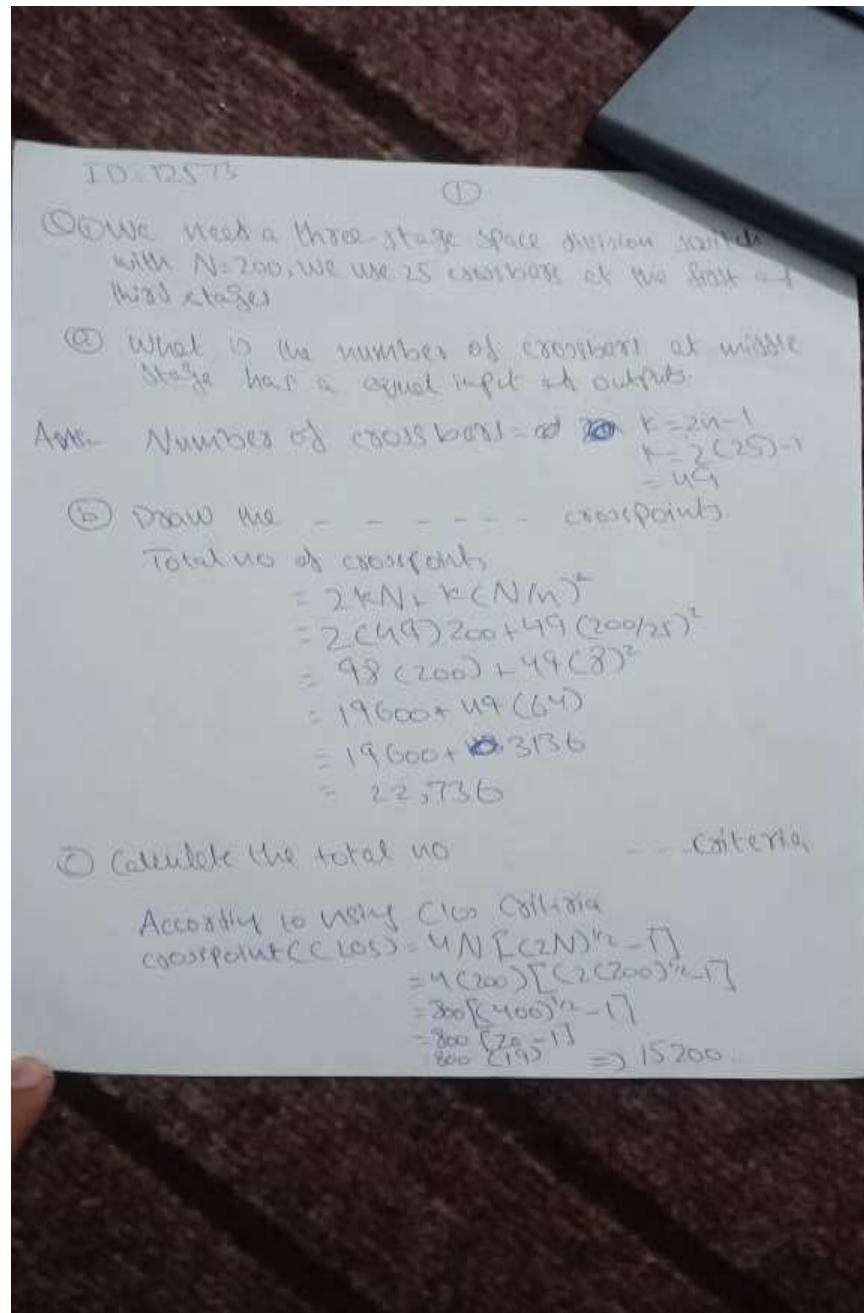 ID-12573
①
Q① We need a three-stage space division switch
with N=200, we use 25 crossbars at the first and
third stages
ⓐ What is the number of crossbars at middle
stage has a equal input outputs.
Ans- Number of crossbars= k=2n-1
k=2(25)-1
=49
ⓑ Draw the - - - - - - crosspoints.
Total no of crosspoints
= 2kN+ k(N/n)²
= 2(49)200+49(200/25)²
= 98(200)+49(8)²
= 19600+49(64)
= 19600+ 3136
= 22,736
ⓒ Calculate the total no - - - criteria
to using Clos
crosspoint(CLOS)=4N[(2N)^1/2-1]
=4(200)[(2(200)^1/2-1]
=800[(400)^1/2-1]
=800[20-1]
800(19) => 15200.